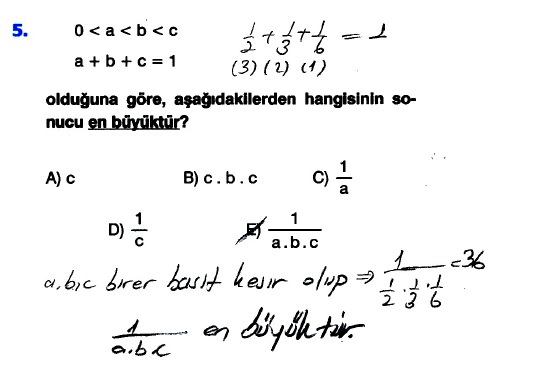 5. 0 < a < b < c 1/2 + 1/3 + 1/6 = 1
a + b + c = 1 (3) (2) (1)
olduğuna göre, aşağıdakilerden hangisinin so-
nucu en büyüktür?
A) c B) c . b . c C) 1/a
D) 1/c E) 1/a.b.c
a.b,c birer basit kesir olup ⇒ 1/(1/2 . 1/3 . 1/6) = 36
1/a.b.c en büyüktür.